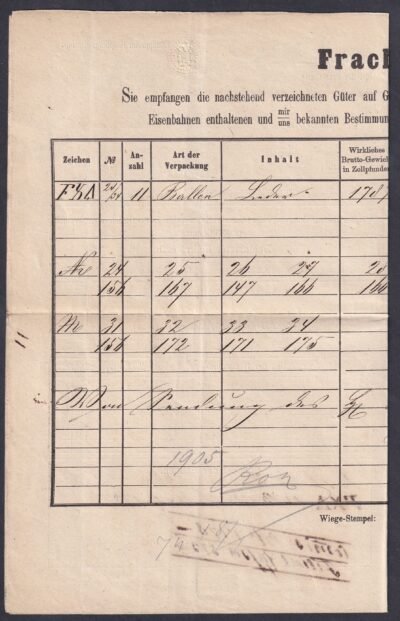 Frach
Sie empfangen die nachstehend verzeichneten Güter auf G
Eisenbahnen enthaltenen und mir/uns bekannten Bestimmun
Zeichen № An-zahl Art der Verpackung Inhalt Wirkliches Brutto-Gewich in Zollpfunden
24/34 11 Ballen Leder 178
No 24 25 26 27 28
156 167 147 166 166
No 31 32 33 34
156 172 171 175
11
Von Sendung des H
1905
Wiege-Stempel: